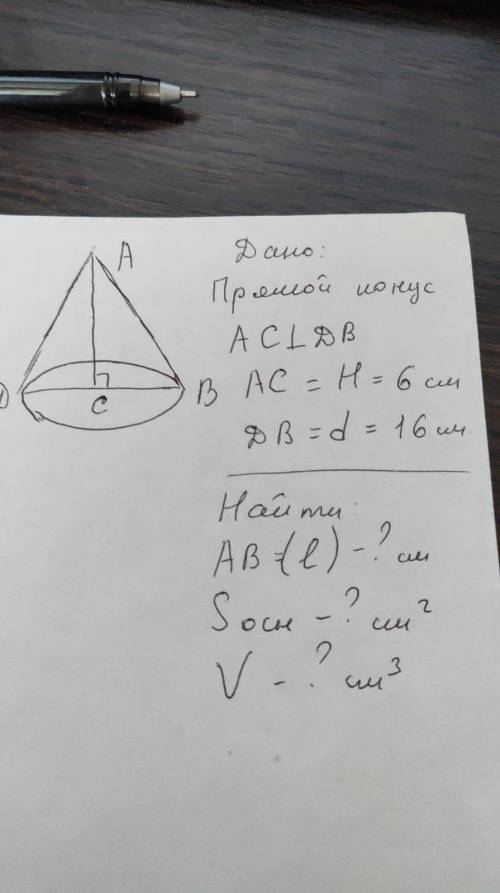 A
Дано:
Прямой конус
AC⊥DB
D
C
B
AC = H = 6 см
DB = d = 16 см
Найти:
AB=(l) - ? см
Sосн - ? см²
V - ? см³